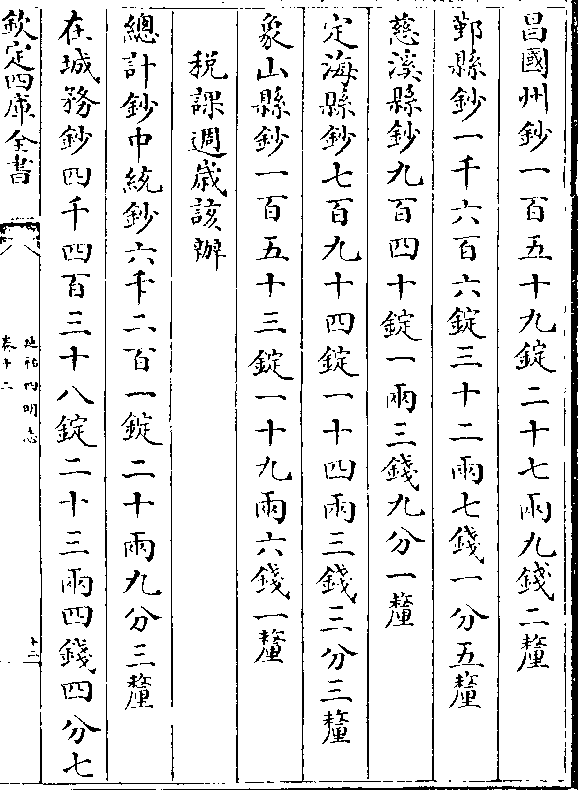 昌國州鈔一百五十九錠二十七兩九錢二釐
鄞縣鈔一千六百六錠三十二兩七錢一分五釐
慈溪縣鈔九百四十錠一兩三錢九分一釐
定海縣鈔七百九十四錠一十四兩三錢三分三釐
象山縣鈔一百五十三錠一十九兩六錢一釐
税課週歳該辦
總計鈔中統鈔六千二百一錠二十兩九分三釐
在城務鈔四千四百三十八錠二十三兩四錢四分七
欽定四庫全書
延祐四明志
卷十二
十三